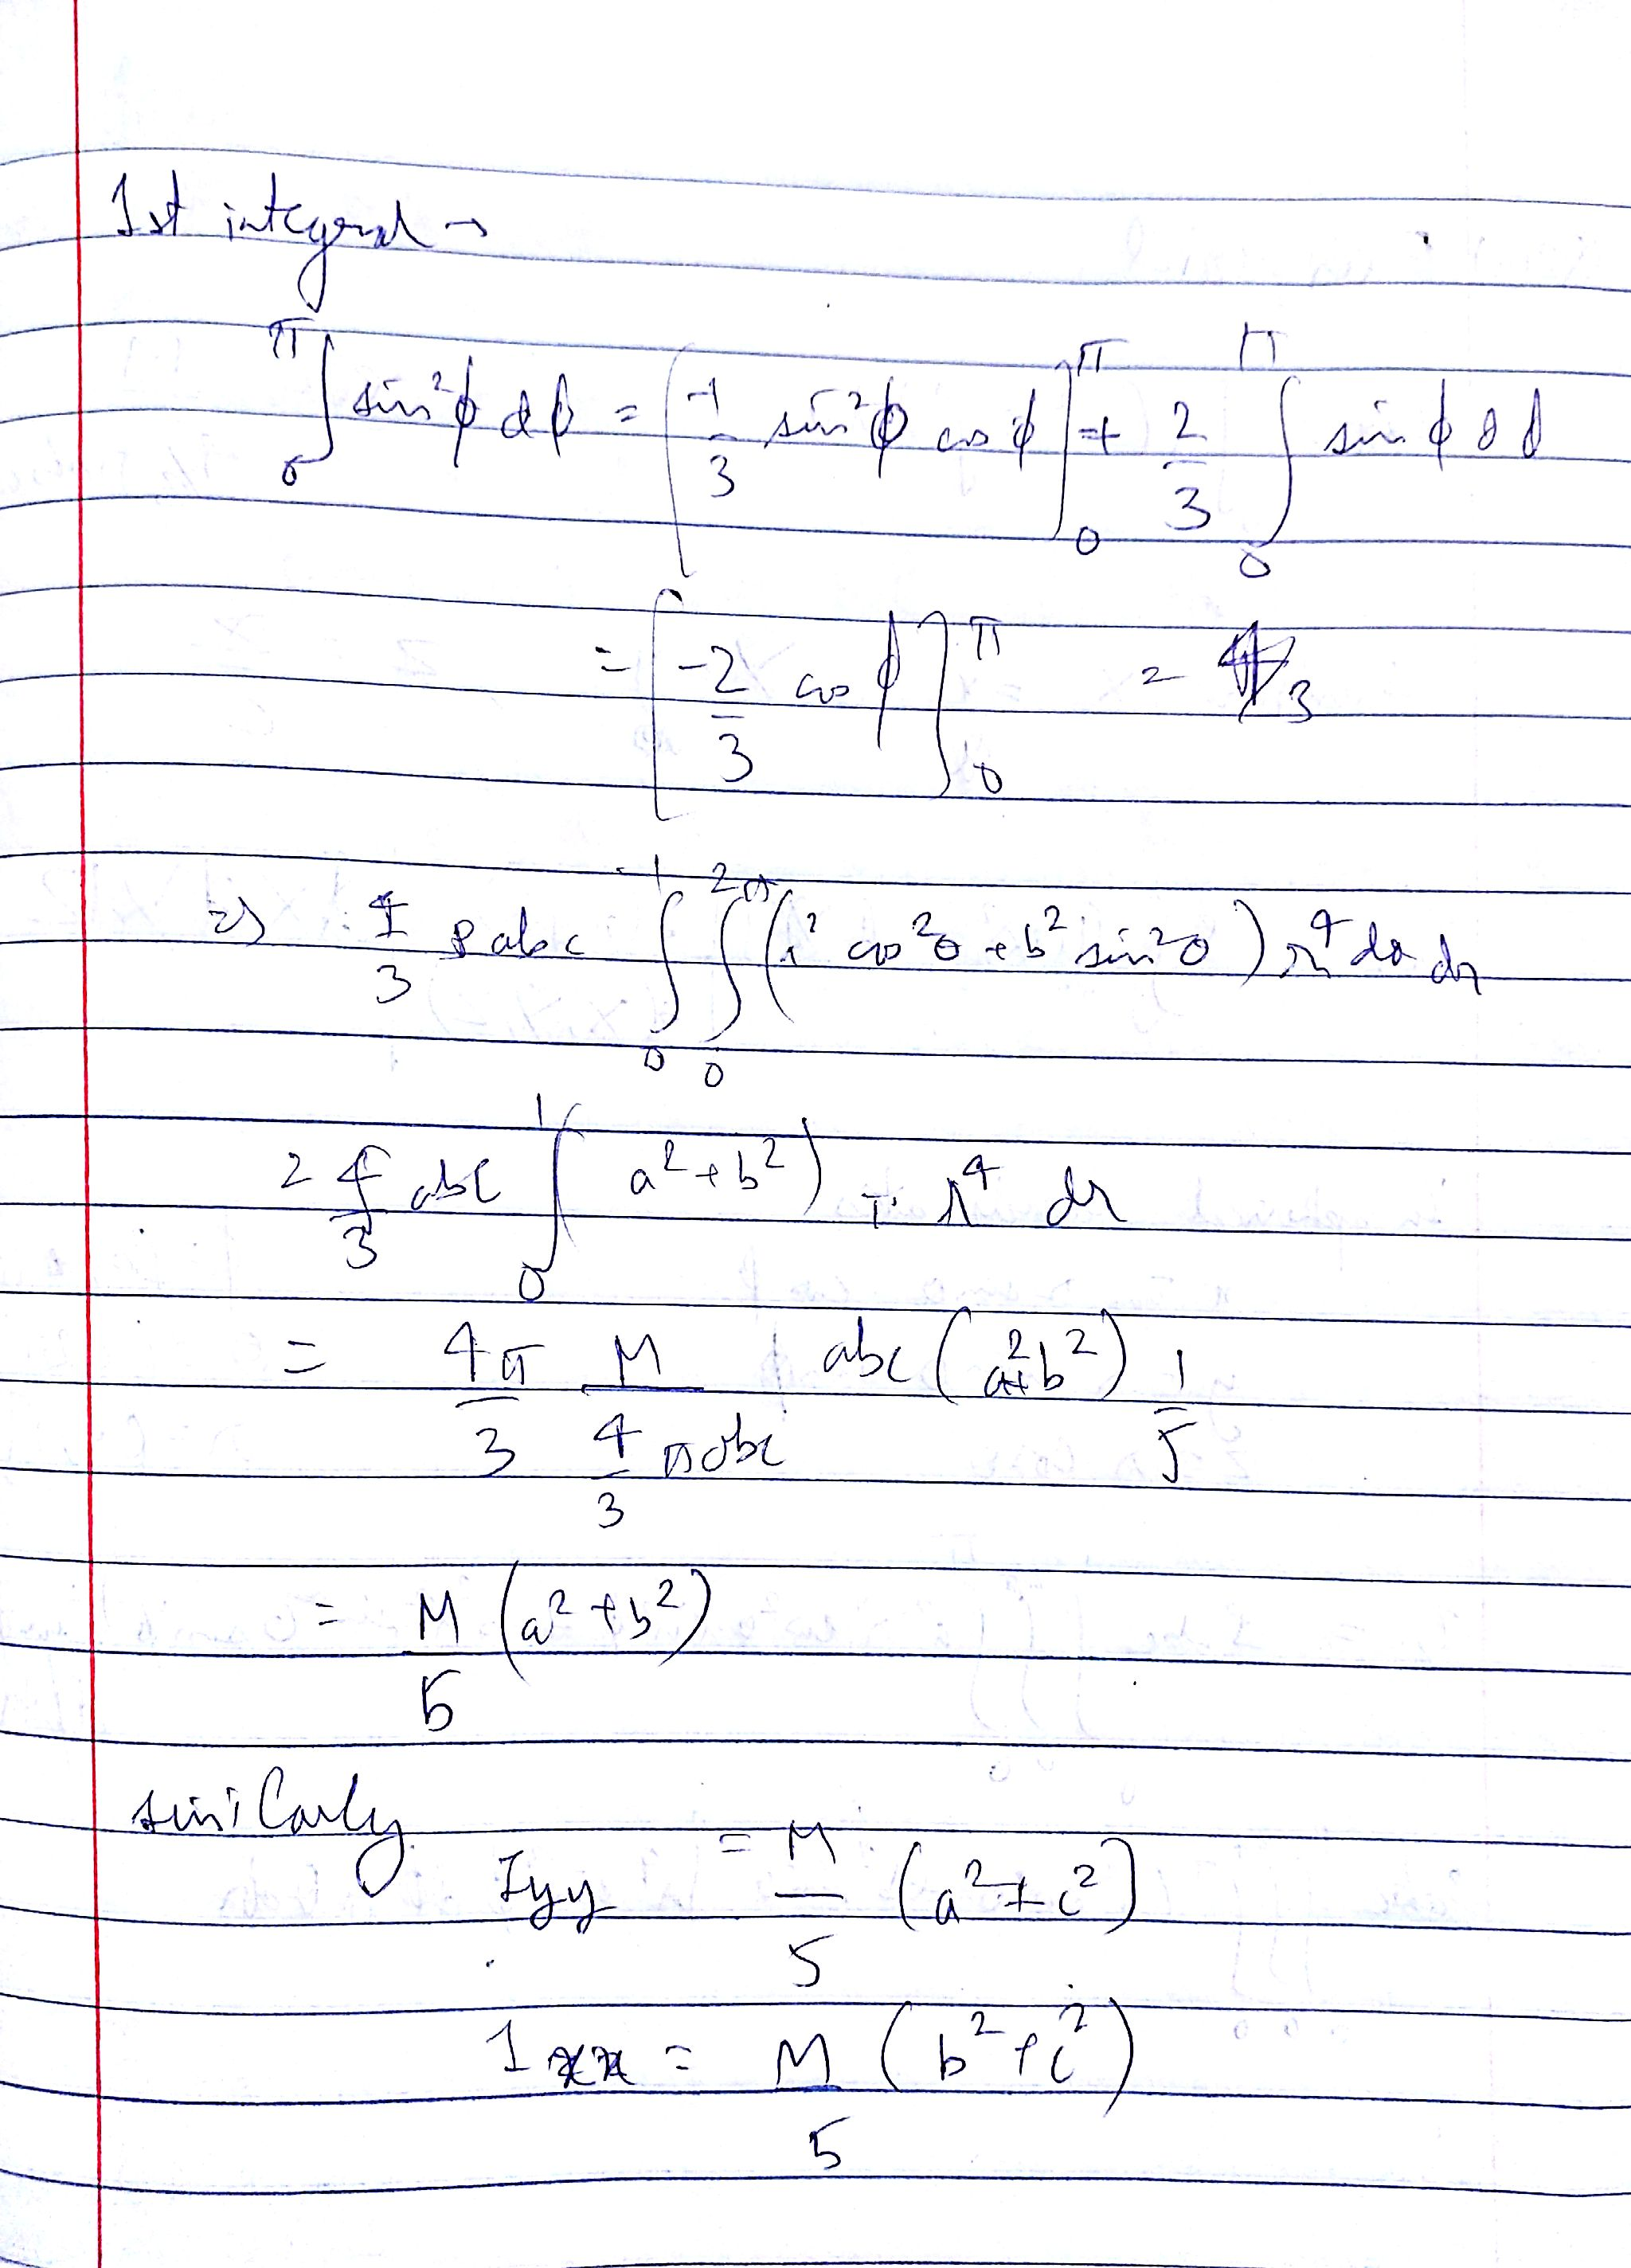 1st integral →
∫₀^π sin²ϕ dϕ = [-1/3 sin²ϕ cos ϕ]₀^π + 2/3 ∫₀^π sin ϕ dϕ
= [-2/3 cos ϕ]₀^π = 4/3
=> 4/3 ρabc ∫₀^1 ∫₀^2π (a² cos²θ + b² sin²θ) r⁴ dθ dr
= 4/3 abc ∫₀^1 (a² + b²) π r⁴ dr
= 4π/3 M/(4/3 πabc) abc (a² + b²) 1/5
= M/5 (a² + b²)
similarly
Iyy = M/5 (a² + c²)
Ixx = M/5 (b² + c²)